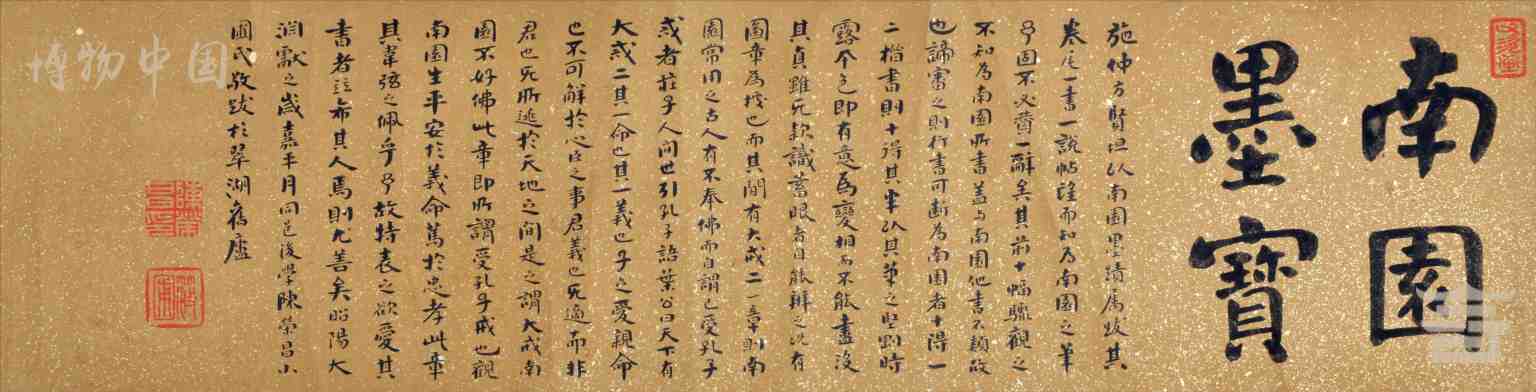 南園
墨寶
施仲方賢坦以南園墨蹟屬跋其
卷尾一書一說帖望而知為南園之筆
予固不必費一辭矣其前十幅驟觀之
不知為南園所書蓋與南園他書不類故
也諦審之則行書可斷為南園者十得一
二楷書則十得其半以其筆之堅勁時
露本色即有意為變相而不能盡沒
其真雖無款識蓄眼者自能辨之況有
圖章為據也而其間有大戒二一章則南
園常用之古人有不奉佛而自謂已受孔子
戒者莊子人間世引孔子語葉公曰天下有
大戒二其一命也其一義也子之愛親命
也不可解於心臣之事君義也無適而非
君也無所逃於天地之間是之謂大戒南
園不好佛此章即所謂受孔子戒也觀
南園生平安於義命篤於忠孝此章
其韋弦之佩乎予故特表之欲愛其
書者並希其人焉則尤善矣昭陽大
淵獻之歲嘉平月同邑後學陳榮昌小
圃氏敬跋於翠湖舊廬
博物中国